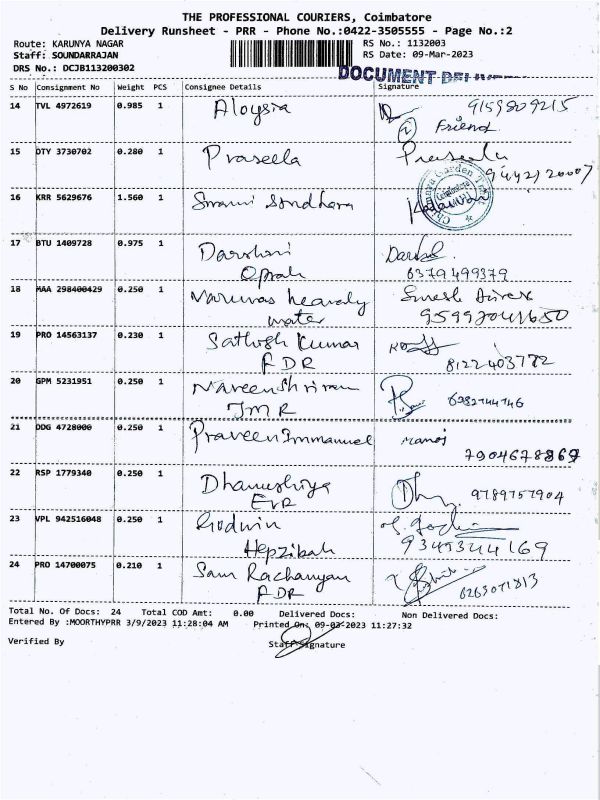 THE PROFESSIONAL COURIERS, Coimbatore
Delivery Runsheet - PRR - Phone No.:0422-3505555 - Page No.:2
Route: KARUNYA NAGAR
RS No.: 1132003
Staff: SOUNDARRAJAN
RS Date: 09-Mar-2023
DRS No.: DCJB113200302
DOCUMENT
S No Consignment No Weight PCS Consignee Details Signature
14 TVL 4972619 0.985 1 Aloysia 9159809215
Friend
15 DTY 3730702 0.280 1 Praseela Praseela
16 KRR 5629676 1.560 1 Swami
Garden
Coimbatore
17 BTU 1409728 0.975 1 Darshani
Oprah 6379499379
18 MAA 298400429 0.250 1 heavaly
water
19 PRO 14563137 0.230 1 Sathosh Kumar
FDR 8122403772
20 GPM 5231951 0.250 1 Naveenshriram
JMR 6382744746
21 DDG 4728000 0.250 1 Praveen Immanuel Manoj
7904678869
22 RSP 1779340 0.250 1 Dhanushiya
EVR 9789757904
23 VPL 942516048 0.250 1 Godwin
Hepzibah 9345344169
24 PRO 14700075 0.210 1 Sam Rachanyan
FDR
Total No. Of Docs: 24 Total COD Amt: 0.00 Delivered Docs: Non Delivered Docs:
Entered By :MOORTHYPRR 3/9/2023 11:28:04 AM Printed On: 09-03-2023 11:27:32
Verified By
Staff Signature